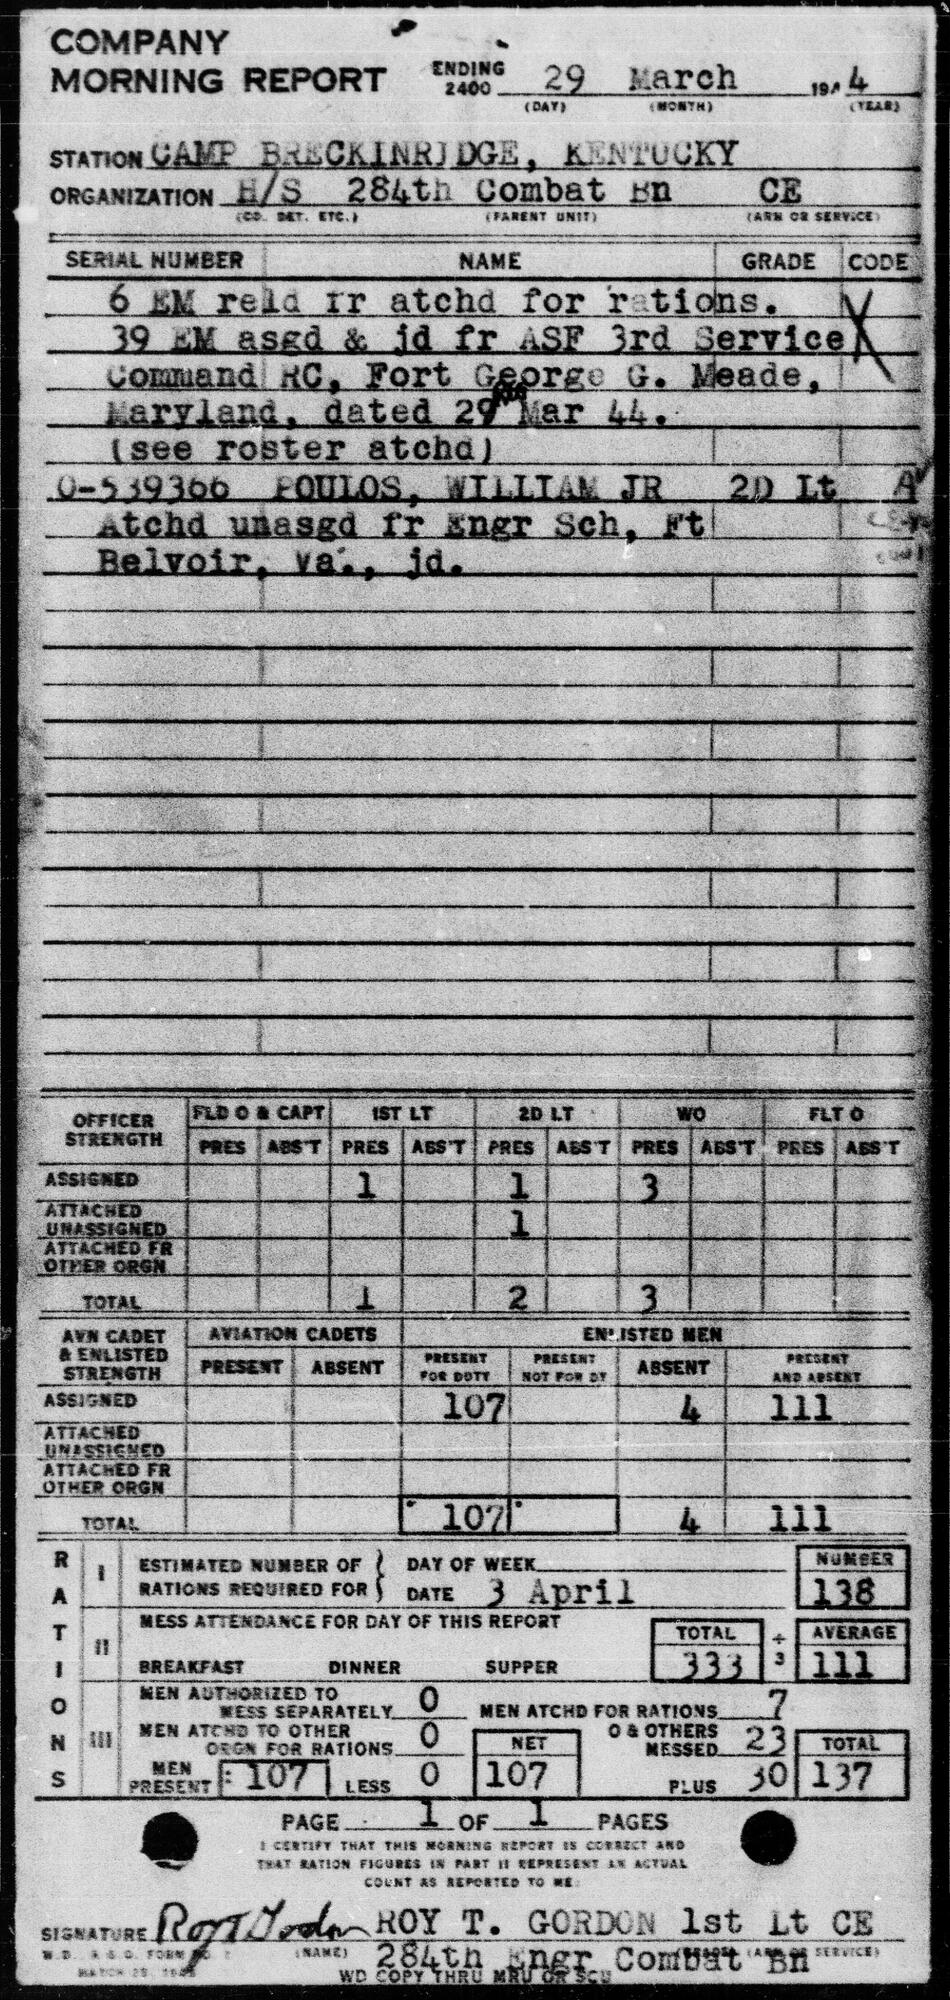 COMPANY
MORNING REPORT ENDING 2400 29 March 194 4
(DAY) (MONTH) (YEAR)
STATION CAMP BRECKINRIDGE, KENTUCKY
ORGANIZATION H/S 284th Combat Bn CE
(CO. DET. ETC.) (PARENT UNIT) (ARM OR SERVICE)
SERIAL NUMBER NAME GRADE CODE
6 EM reld fr atchd for rations.
39 EM asgd & jd fr ASF 3rd Service X
Command RC, Fort George G. Meade,
Maryland, dated 29 Mar 44.
(see roster atchd)
O-539366 POULOS, WILLIAM JR 2D Lt A
Atchd unasgd fr Engr Sch, Ft
Belvoir, Va., jd.
OFFICER STRENGTH FLD O & CAPT 1ST LT 2D LT WO FLT O
PRES ABS'T PRES ABS'T PRES ABS'T PRES ABS'T PRES ABS'T
ASSIGNED 1 1 3
ATTACHED UNASSIGNED 1
ATTACHED FR OTHER ORGN
TOTAL 1 2 3
AVN CADET & ENLISTED STRENGTH AVIATION CADETS ENLISTED MEN
PRESENT ABSENT PRESENT FOR DUTY PRESENT NOT FOR DY ABSENT PRESENT AND ABSENT
ASSIGNED 107 4 111
ATTACHED UNASSIGNED
ATTACHED FR OTHER ORGN
TOTAL 107 4 111
RATIONS
I ESTIMATED NUMBER OF RATIONS REQUIRED FOR DAY OF WEEK NUMBER
DATE 3 April 138
II MESS ATTENDANCE FOR DAY OF THIS REPORT TOTAL ÷ AVERAGE
BREAKFAST DINNER SUPPER 333 3 111
III MEN AUTHORIZED TO MESS SEPARATELY 0 MEN ATCHD FOR RATIONS 7
MEN ATCHD TO OTHER ORGN FOR RATIONS 0 NET O & OTHERS MESSED 23 TOTAL
MEN PRESENT 107 LESS 0 107 PLUS 30 137
PAGE 1 OF 1 PAGES
I CERTIFY THAT THIS MORNING REPORT IS CORRECT AND
THAT RATION FIGURES IN PART II REPRESENT AN ACTUAL
COUNT AS REPORTED TO ME:
SIGNATURE Roy T Gordon ROY T. GORDON 1st Lt CE
W. D., A. G. O. FORM NO. 1 (NAME) 284th Engr Combat Bn (ARM OR SERVICE)
WD COPY THRU MRU OR SCU